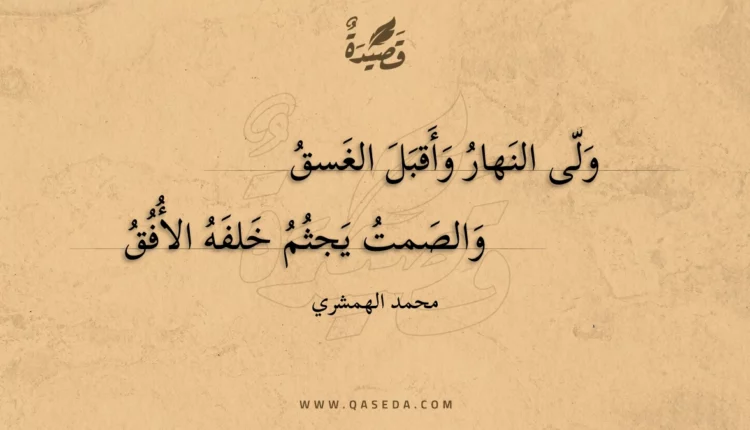 قَصِيْدَةٌ
وَلّى النَهارُ وَأَقبَلَ الغَسقُ
وَالصَمتُ يَجثُمُ خَلفَهُ الأُفُقُ
محمد الهمشري
WWW.QASEDA.COM